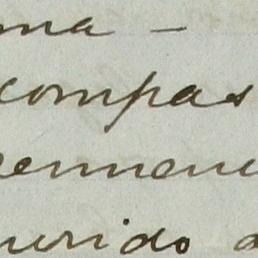 ma -
compas
ermeni
urido a